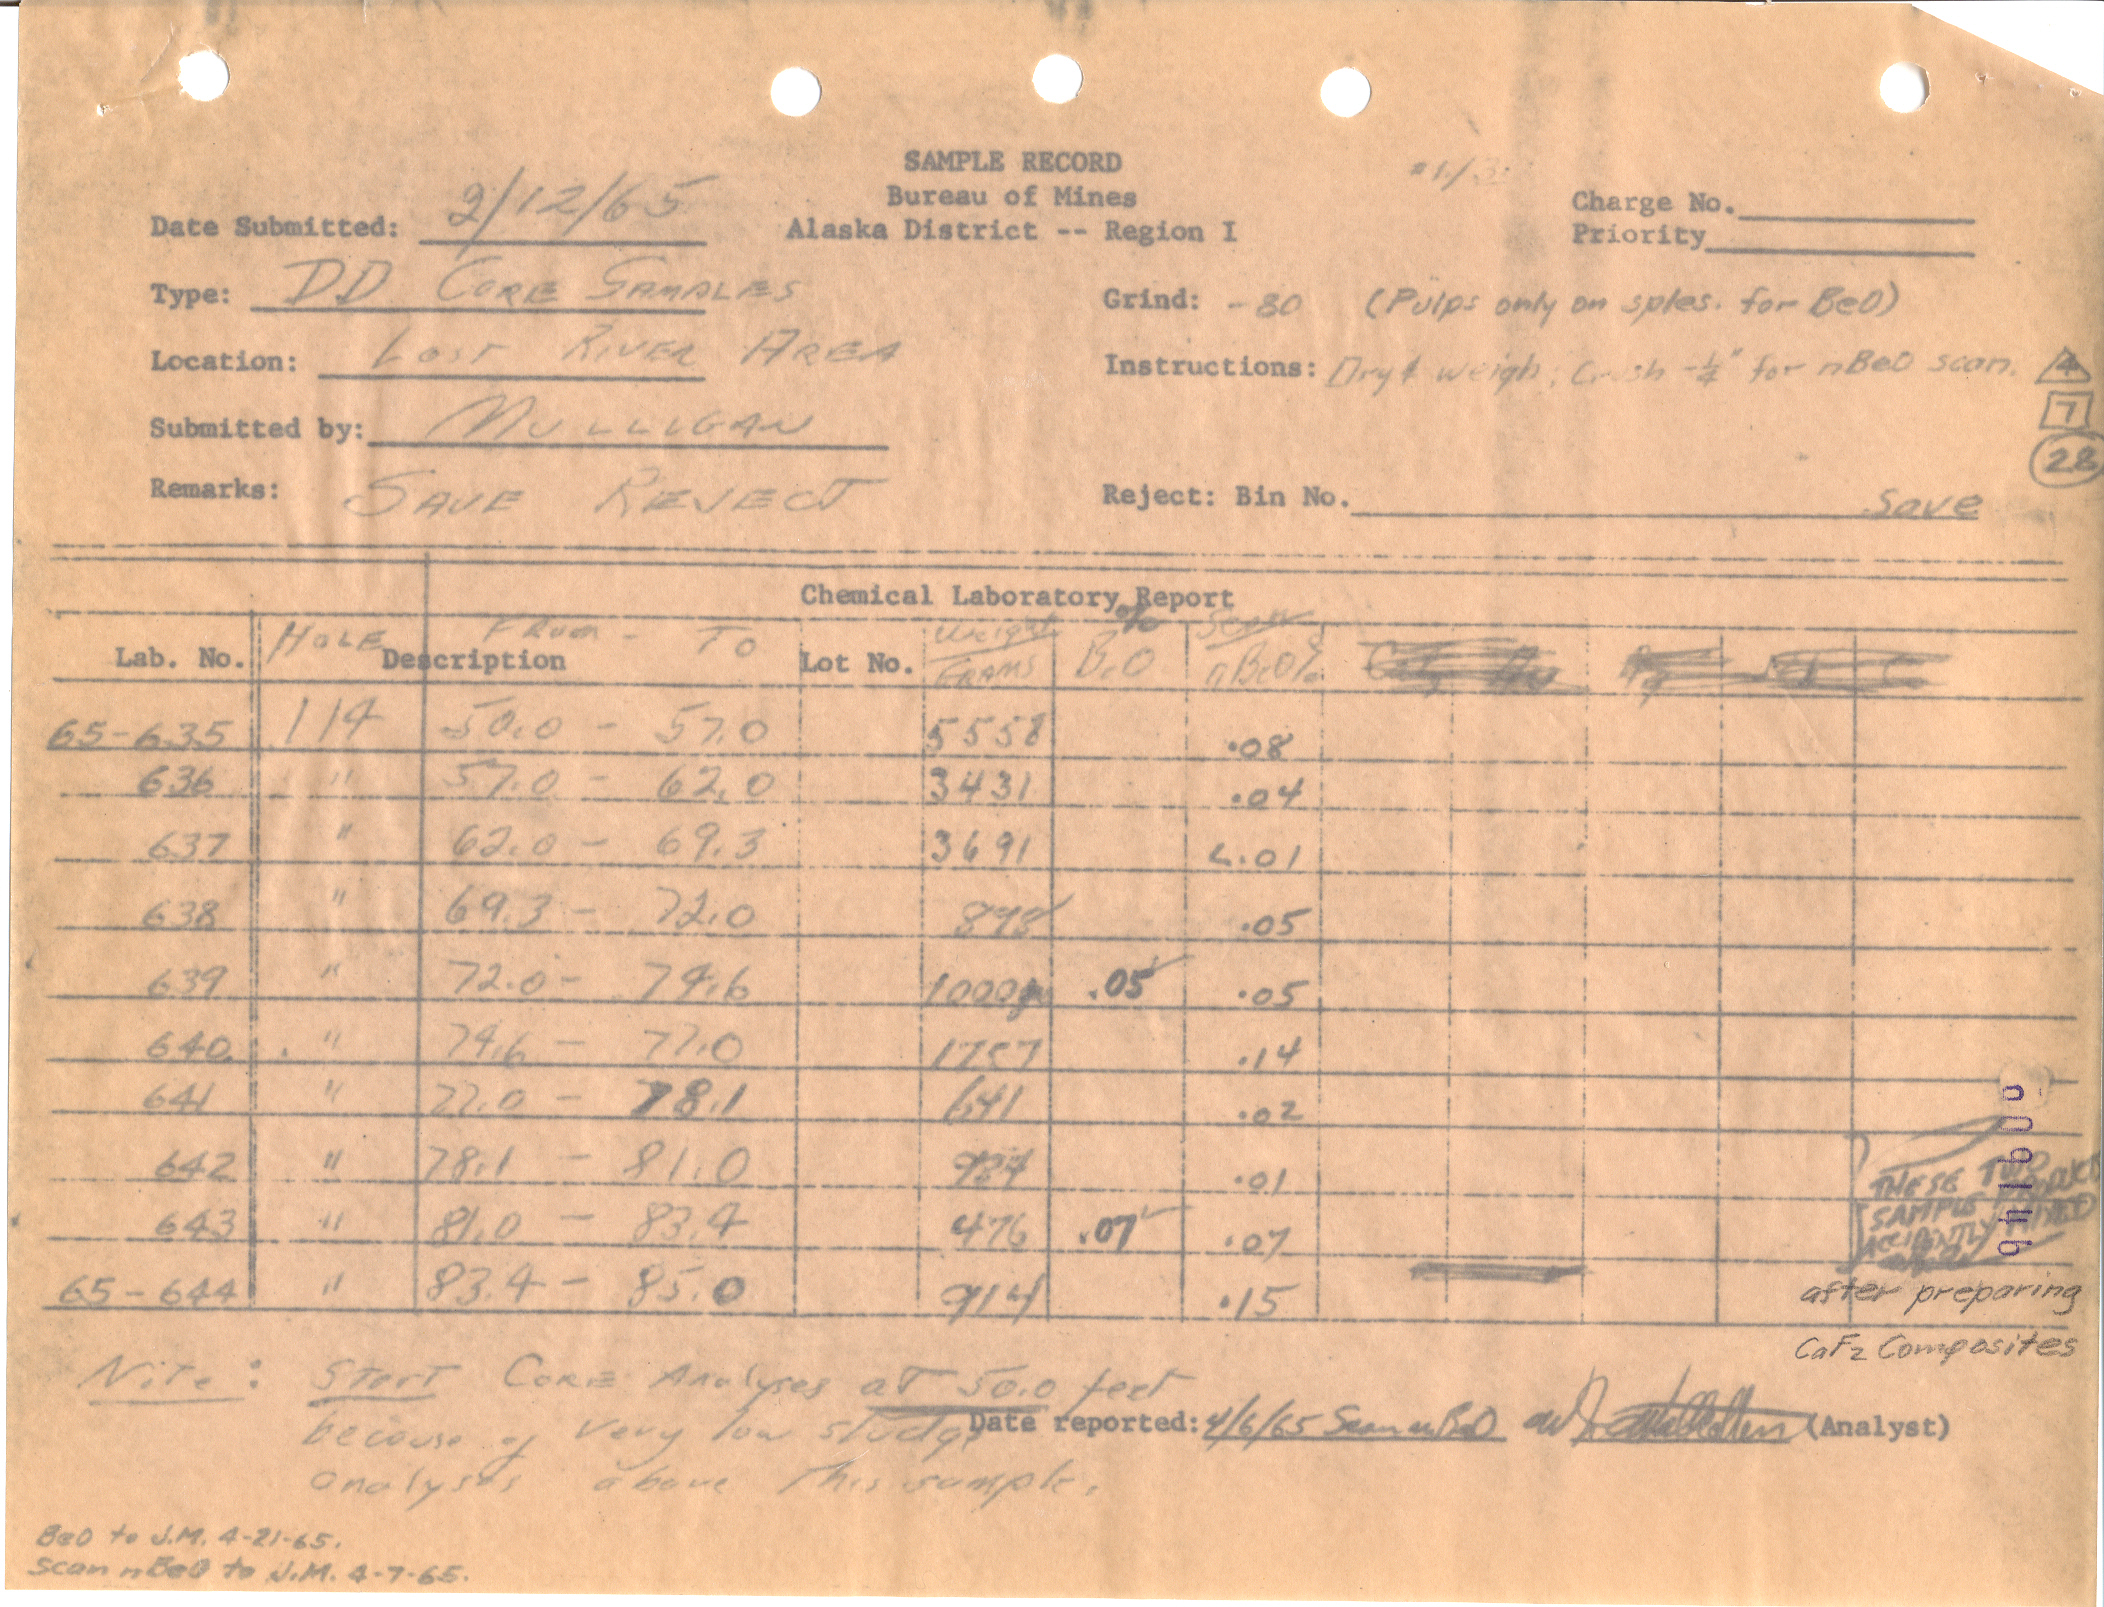 SAMPLE RECORD
Bureau of Mines
Alaska District -- Region I
Charge No.
Priority
Date Submitted: 2/12/65
Type: DD CORE SAMPLES
Grind: -80 (Pulps only on sples. for BeO)
Location: LOST RIVER AREA
Instructions: Dry & weigh; Crush -1/4" for nBeO scan. 4
7
Submitted by: MULLIGAN
28
Remarks: SAVE REJECT
Reject: Bin No. Save
Chemical Laboratory Report
Lab. No. HOLE Description FROM - TO Lot No. Weight GRAMS % BeO Scan nBeO%
65-635 114 50.0 - 57.0 5558 .08
636 " 57.0 - 62.0 3431 .04
637 " 62.0 - 69.3 3691 <.01
638 " 69.3 - 72.0 898 .05
639 " 72.0 - 74.6 1000 .05 .05
640 " 74.6 - 77.0 .14
641 " 77.0 - 78.1 641 .02
642 " 78.1 - 81.0 .01
643 " 81.0 - 83.4 476 .07 .07
65-644 " 83.4 - 85.0 914 .15
THESE TWO
SAMPLE
ACCIDENTLY MIXED
after preparing
CaF2 Composites
Note: START CORE Analyses at 50.0 feet
because of very low sludge
analyses above this sample.
Date reported: 4/6/65 Scan nBeO (Analyst)
BeO to J.M. 4-21-65.
Scan nBeO to J.M. 4-7-65.